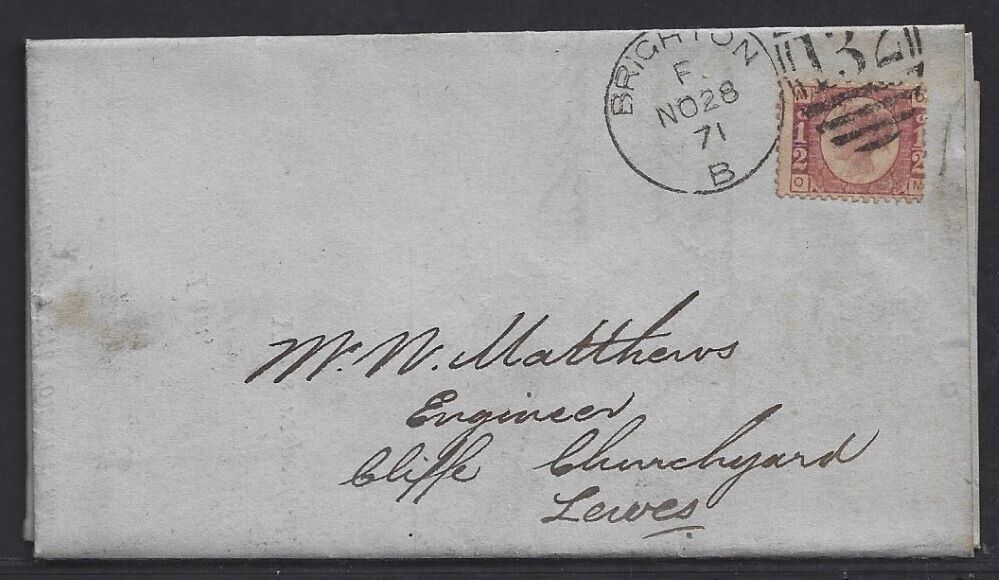 BRIGHTON
F
NO 28
71
B
132
½ ½
O M
Mr. W. Matthews
Engineer
Cliffe Churchyard
Lewes